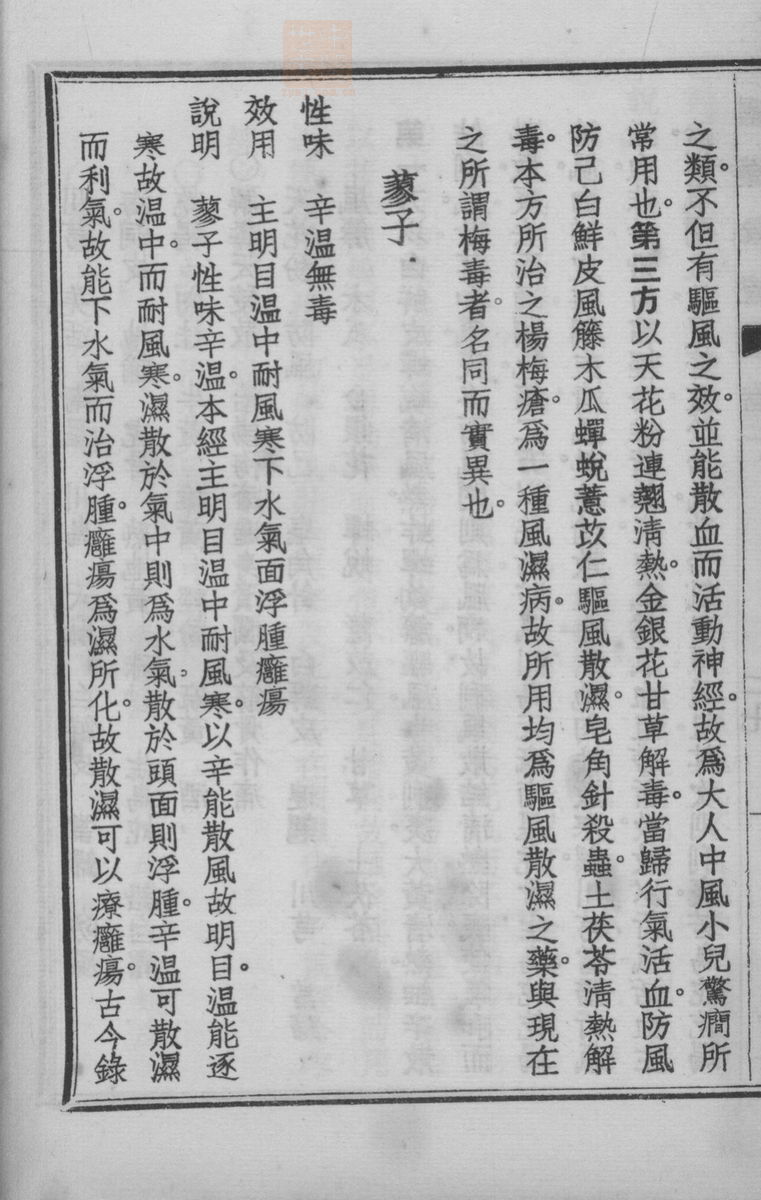 之類。不但有驅風之效。並能散血而活動神經。故爲大人中風小兒驚癇所
常用也。第三方以天花粉連翹淸熱。金銀花甘草解毒。當歸行氣活血。防風
防己白鮮皮風籐木瓜蟬蛻薏苡仁驅風散濕。皂角針殺蟲。土茯苓淸熱解
毒。本方所治之楊梅瘡。爲一種風濕病。故所用均爲驅風散濕之藥。與現在
之所謂梅毒者。名同而實異也。
蓼子
性味　辛温無毒
效用　主明目温中耐風寒下水氣面浮腫癰瘍
說明　蓼子性味辛温。本經主明目温中耐風寒。以辛能散風故明目。温能逐
寒故温中。而耐風寒。濕散於氣中則爲水氣。散於頭面則浮腫。辛温可散濕
而利氣。故能下水氣而治浮腫。癰瘍爲濕所化。故散濕可以療癰瘍。古今錄